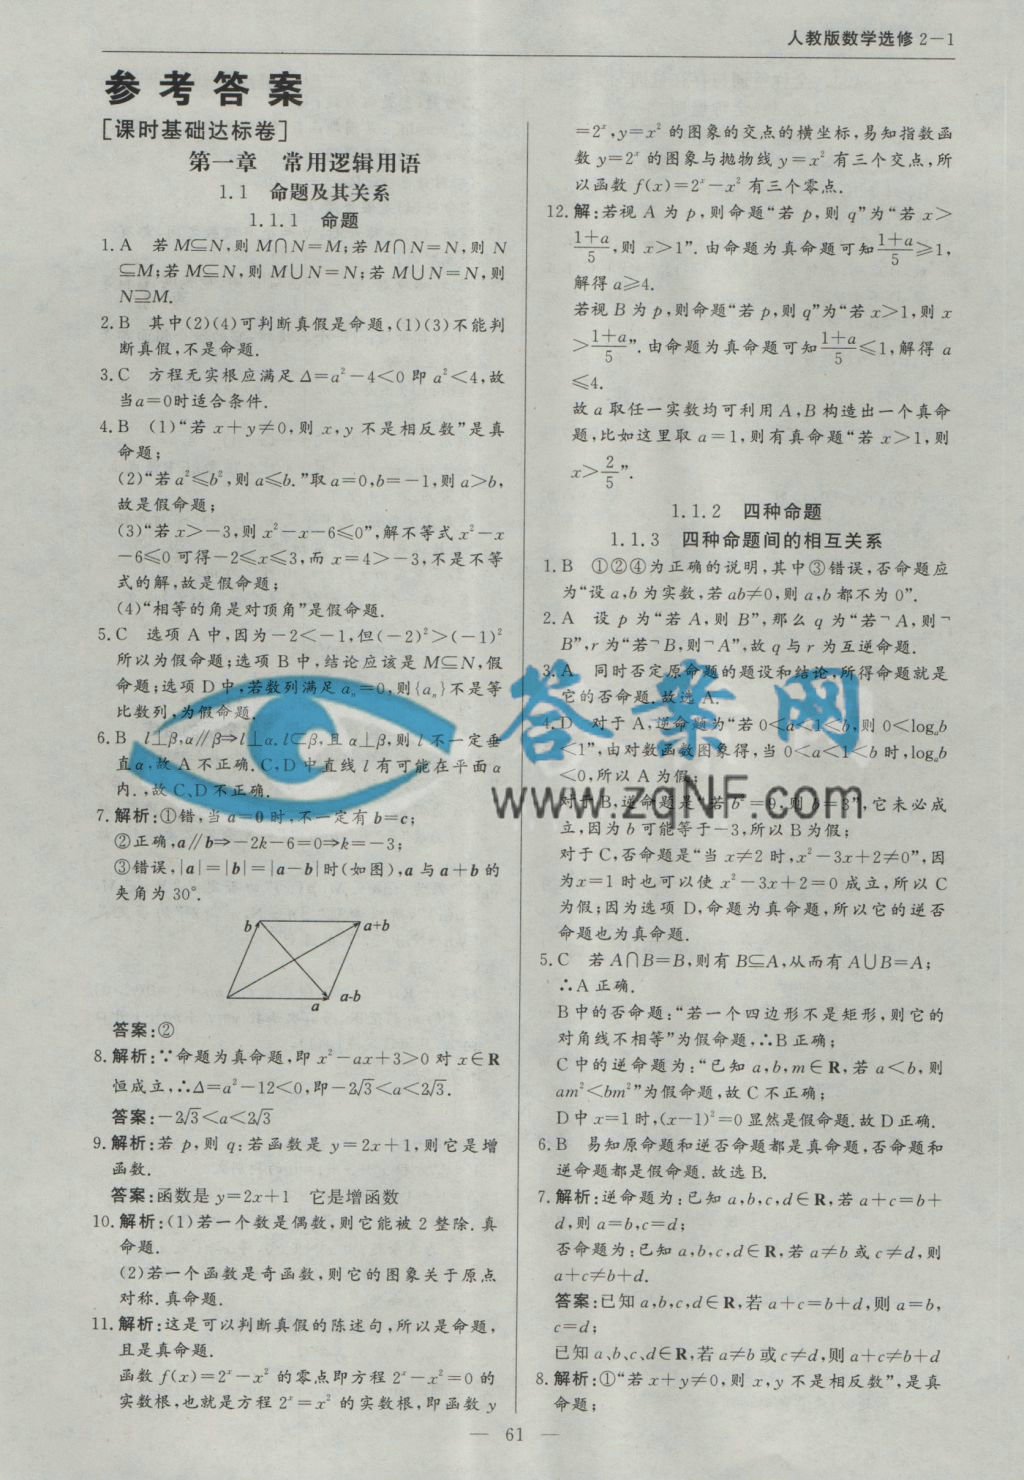 人教版数学选修2—1
参考答案
[课时基础达标卷]
第一章 常用逻辑用语
1.1 命题及其关系
1.1.1 命题
1. A 若M⊆N,则M∩N=M;若M∩N=N,则N
⊆M;若M⊆N,则M∪N=N;若M∪N=N,则
N⊇M.
2. B 其中(2)(4)可判断真假是命题,(1)(3)不能判
断真假,不是命题.
3. C 方程无实根应满足Δ=a²-4<0即a²<4,故
当a=0时适合条件.
4. B (1)“若x+y≠0,则x,y不是相反数”是真
命题;
(2)“若a²≤b²,则a≤b.”取a=0,b=-1,则a>b,
故是假命题;
(3)“若x>-3,则x²-x-6≤0”,解不等式x²-x
-6≤0可得-2≤x≤3,而x=4>-3,不是不等
式的解,故是假命题;
(4)“相等的角是对顶角”是假命题.
5. C 选项A中,因为-2<-1,但(-2)²>(-1)²
所以为假命题;选项B中,结论应该是M⊆N,假
命题;选项D中,若数列满足aₙ=0,则{aₙ}不是等
比数列,为假命题.
6. B l⊥β,α∥β⇒l⊥α.l⊂β,且α⊥β,则l不一定垂
直α,故A不正确.C,D中直线l有可能在平面α
内.,故C、D不正确.
7. 解析:①错,当a=0时,不一定有b=c;
②正确,a∥b⇒-2k-6=0⇒k=-3;
③错误,|a|=|b|=|a-b|时(如图),a与a+b的
夹角为30°.
b a+b
a a-b
答案:②
8. 解析:∵命题为真命题,即x²-ax+3>0对x∈R
恒成立,∴Δ=a²-12<0,即-2√3<a<2√3.
答案:-2√3<a<2√3
9. 解析:若p,则q:若函数是y=2x+1,则它是增
函数.
答案:函数是y=2x+1 它是增函数
10. 解析:(1)若一个数是偶数,则它能被2整除.真
命题.
(2)若一个函数是奇函数,则它的图象关于原点
对称.真命题.
11. 解析:这是可以判断真假的陈述句,所以是命题,
且是真命题.
函数f(x)=2ˣ-x²的零点即方程2ˣ-x²=0的
实数根,也就是方程2ˣ=x²的实数根,即函数y
=2ˣ,y=x²的图象的交点的横坐标,易知指数函
数y=2ˣ的图象与抛物线y=x²有三个交点,所
以函数f(x)=2ˣ-x²有三个零点.
12. 解:若视A为p,则命题“若p,则q”为“若x>
(1+a)/5,则x>1”.由命题为真命题可知(1+a)/5≥1,
解得a≥4.
若视B为p,则命题“若p,则q”为“若x>1,则x
>(1+a)/5”.由命题为真命题可知(1+a)/5≤1,解得a
≤4.
故a取任一实数均可利用A,B构造出一个真命
题,比如这里取a=1,则有真命题“若x>1,则
x>2/5”.
1.1.2 四种命题
1.1.3 四种命题间的相互关系
1. B ①②④为正确的说明,其中③错误,否命题应
为“设a,b为实数,若ab≠0,则a,b都不为0”.
2. A 设p为“若A,则B”,那么q为“若¬A,则¬
B”,r为“若¬B,则¬A”,故q与r为互逆命题.
3. A 同时否定原命题的题设和结论,所得命题就是
它的否命题.故选A.
4. D 对于A,逆命题为“若0<a<1<b,则0<logₐb
<1”,由对数函数图象得,当0<a<1<b时,logₐb
<0,所以A为假;
对于B,逆命题是“若b²=9,则b=3”,它未必成
立,因为b可能等于-3,所以B为假;
对于C,否命题是“当x≠2时,x²-3x+2≠0”,因
为x=1时也可以使x²-3x+2=0成立,所以C
为假;因为选项D,命题为真命题,所以它的逆否
命题也为真命题.
5. C 若A∩B=B,则有B⊆A,从而有A∪B=A;
∴A正确.
B中的否命题:“若一个四边形不是矩形,则它的
对角线不相等”为假命题,∴B正确;
C中的逆命题为:“已知a,b,m∈R,若a<b,则
am²<bm²”为假命题,故C不正确;
D中x=1时,(x-1)²=0显然是假命题.故D正确.
6. B 易知原命题和逆否命题都是真命题,否命题和
逆命题都是假命题.故选B.
7. 解析:逆命题为:已知a,b,c,d∈R,若a+c=b+
d,则a=b,c=d;
否命题为:已知a,b,c,d∈R,若a≠b或c≠d,则
a+c≠b+d.
答案:已知a,b,c,d∈R,若a+c=b+d,则a=b,
c=d;
已知a、b、c、d∈R,若a≠b或c≠d,则a+c≠b+d
8. 解析:①“若x+y≠0,则x,y不是相反数”,是真
命题;
— 61 —
答案网
www.zqNF.com